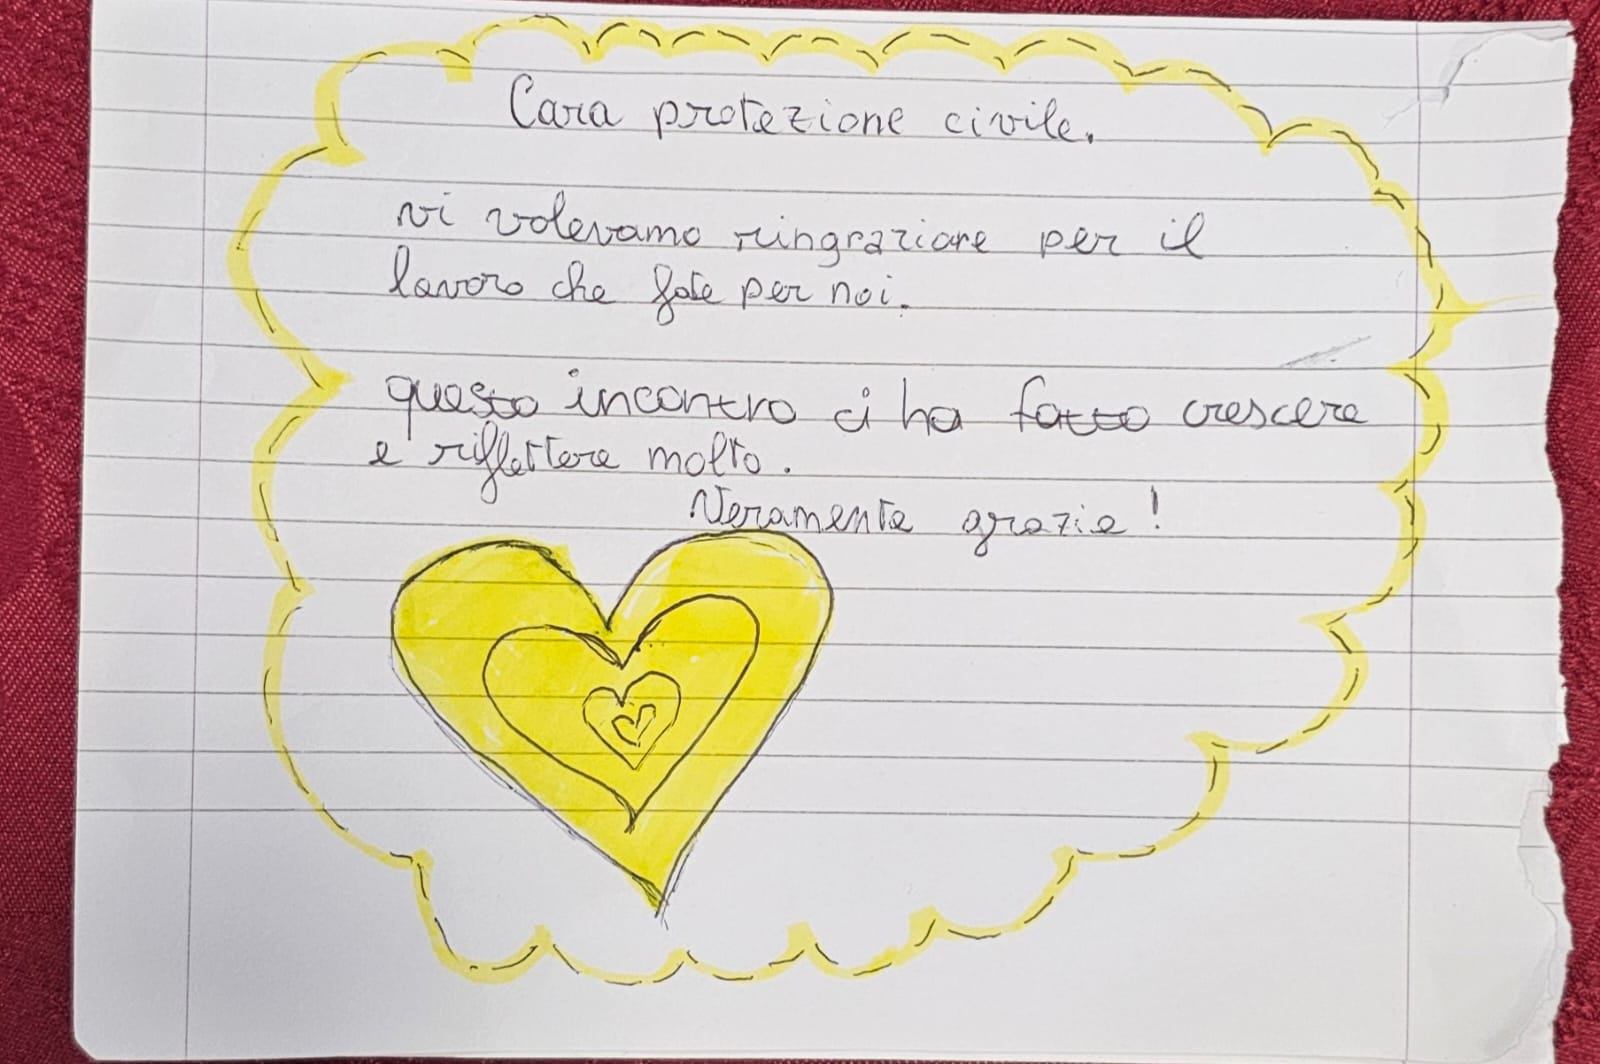 Cara protezione civile.
vi volevamo ringraziare per il
lavoro che fate per noi.
questo incontro ci ha fatto crescere
e riflettere molto.
Veramente grazie!